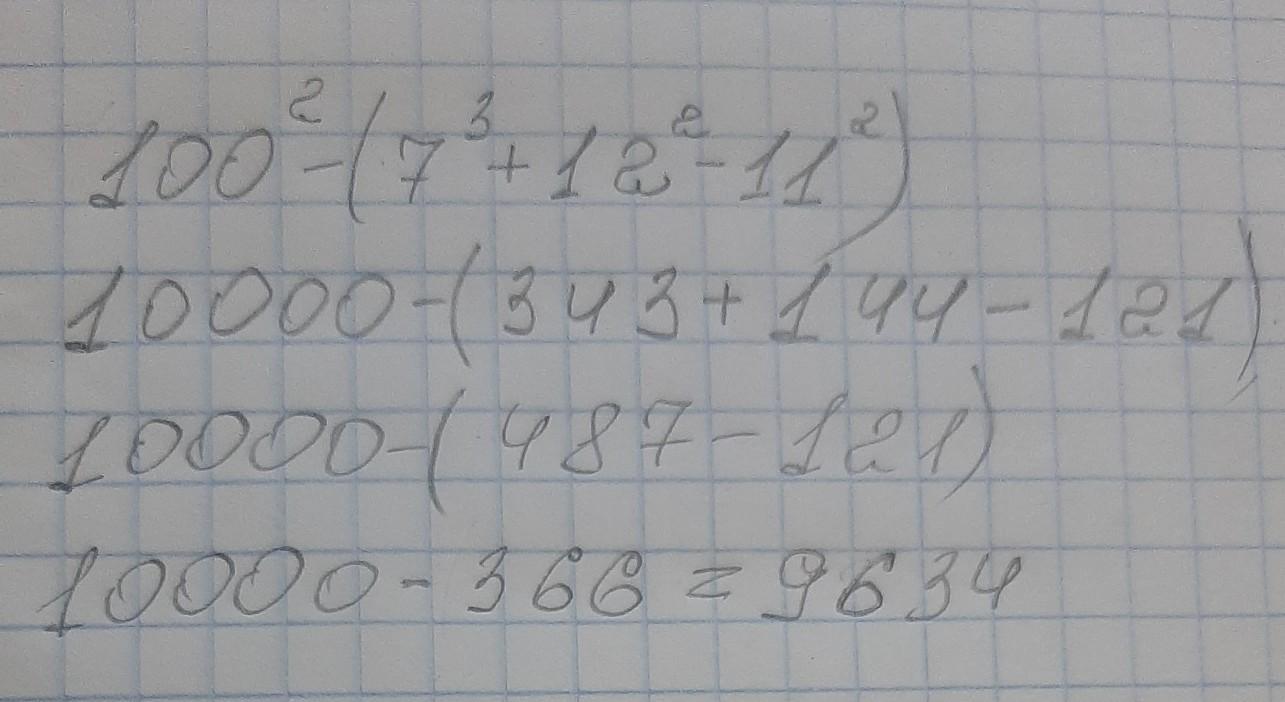 100² - (7³ + 12² - 11²)
10000 - (343 + 144 - 121)
10000 - (487 - 121)
10000 - 366 = 9634